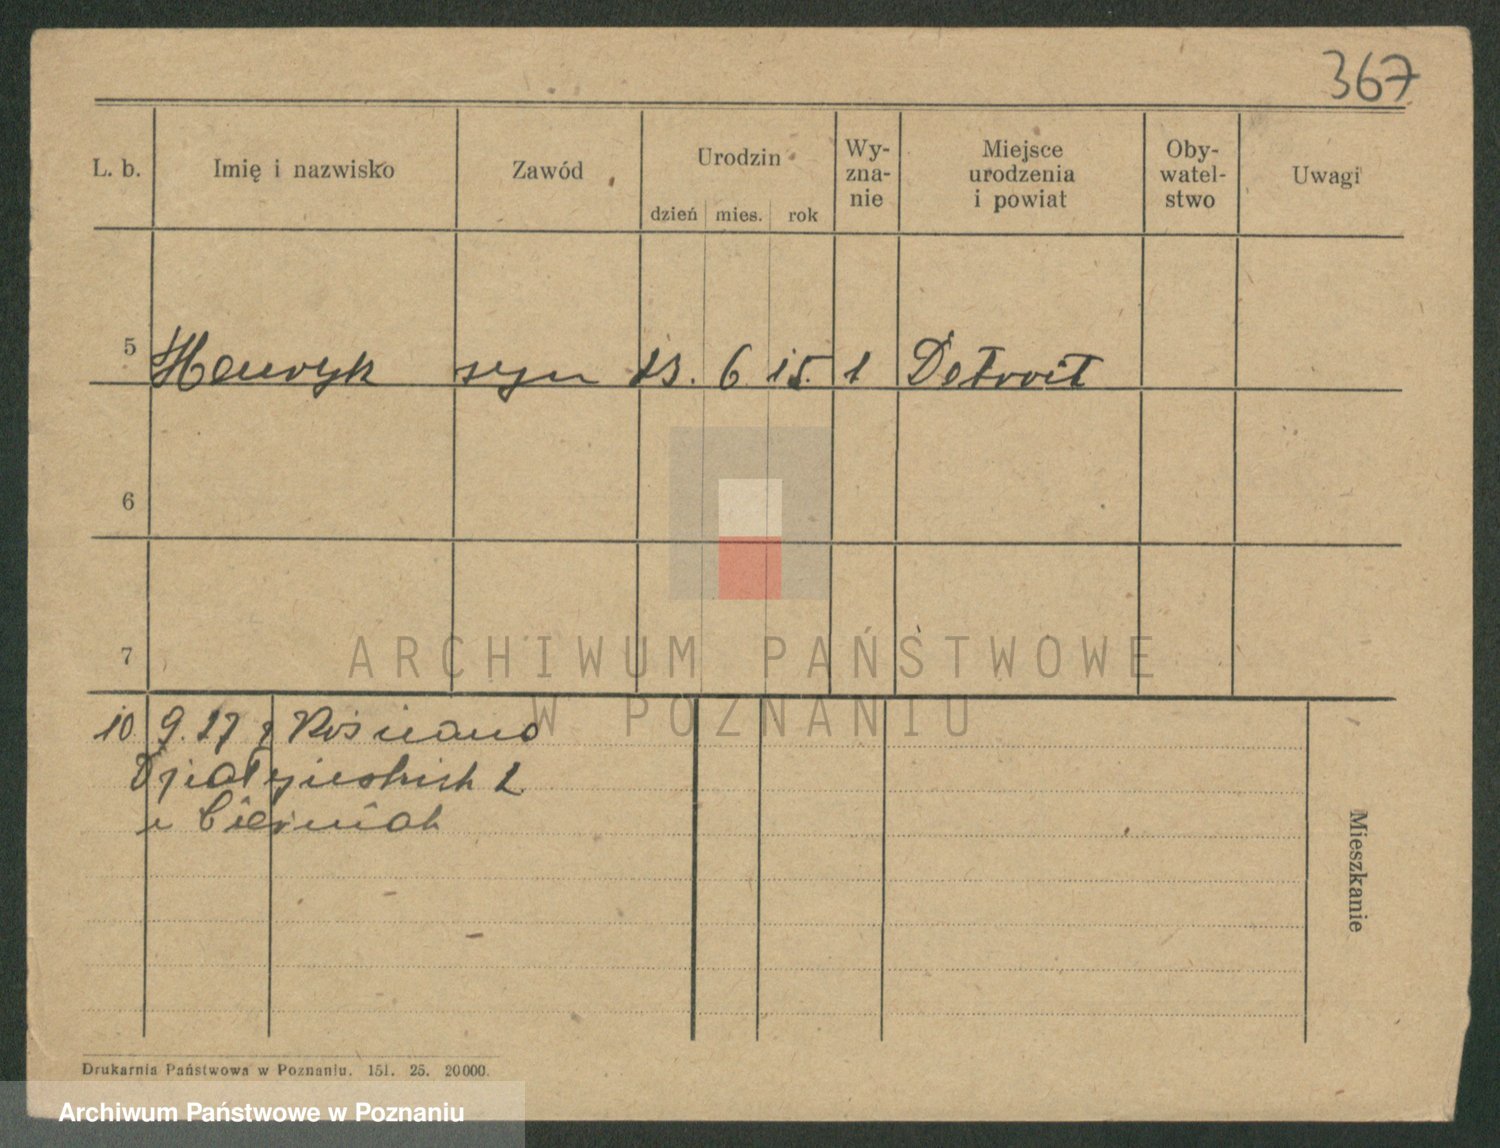 367
L. b. Imię i nazwisko Zawód Urodzin dzień mies. rok Wy- zna- nie Miejsce urodzenia i powiat Oby- watel- stwo Uwagi
5 Henryk syn 13. 6 15. 1 Detroit
6
7
ARCHIWUM PAŃSTWOWE
W POZNANIU
10 9. 27 z
Działyńskich 2
u
Mieszkanie
Drukarnia Państwowa w Poznaniu. 151. 25. 20000.
Archiwum Państwowe w Poznaniu